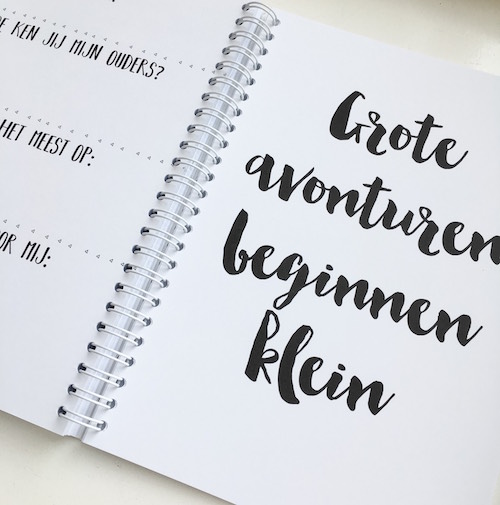 KEN JIJ MIJN OUDERS?
HET MEEST OP:
MIJ:
Grote
avonturen
beginnen
klein